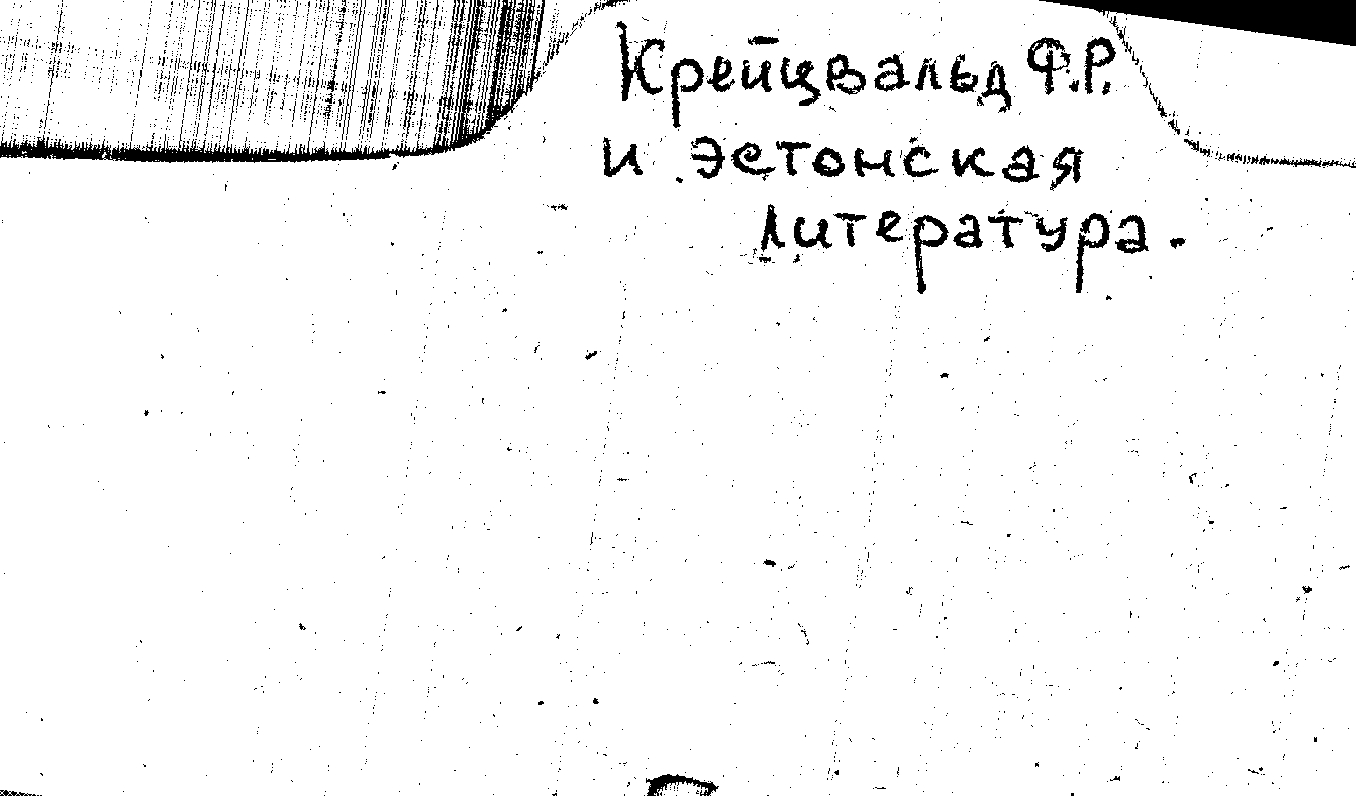 Крейцвальд Ф.Р.
и эстонская
литература.